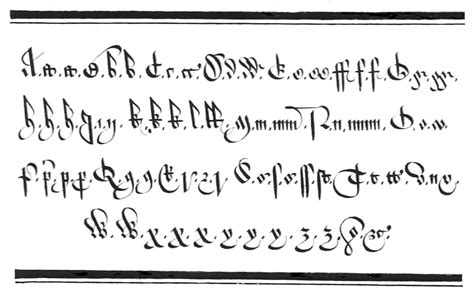 A.a.a.a.B.b.b. C.c.cc. D.d.dd. E.e.ee.ff.f.f. G.g.gg.
h.h.h. J.i.y. k.k.k.l.ll. M.m.mm. N.n.nn. O.o.oo.
P.p.p.p. Q.q.q. R.r.r. S.s.s.ss.st. T.t.tt. V.v.v.
W.W.x.x.x.y.y.y.z.z.&.&c.